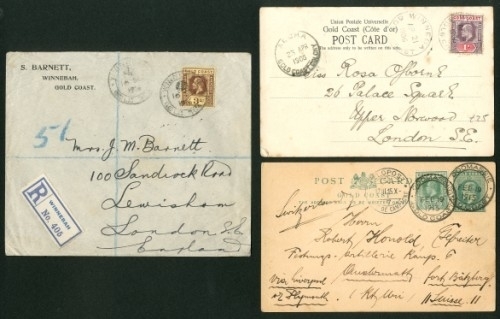 S. BARNETT,
WINNEBAH,
GOLD COAST.
51
Mrs. J. M. Barnett
100 Sandrock Road
Lewisham
London S.E.
England
R
WINNEBAH
No. 406
Union Postale Universelle
Gold Coast (Côte d'or)
POST CARD
The address only to be written on this side
1906
GOLD COAST
Miss Rosa Osborne
26 Palace Square
Upper Norwood
London S.E.
POST
GOLD COAST
Switzerland
Herrn
Robert Honold
Festungs-Artillerie Komp. 6
Andermatt
Fort Bützberg
via Liverpool
Plymouth
(Kt. Uri)
Suisse !!